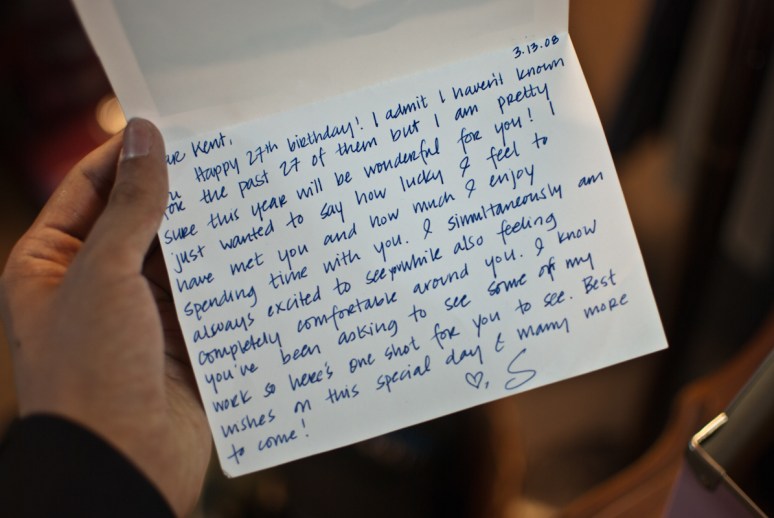 3.13.08
ar Kent,
Happy 27th birthday! I admit I haven't known
for the past 27 of them but I am pretty
sure this year will be wonderful for you! I
just wanted to say how lucky I feel to
have met you and how much I enjoy
spending time with you. I simultaneously am
always excited to see you while also feeling
completely comfortable around you. I know
you've been asking to see some of my
work so here's one shot for you to see. Best
wishes on this special day & many more
to come!
♡, S